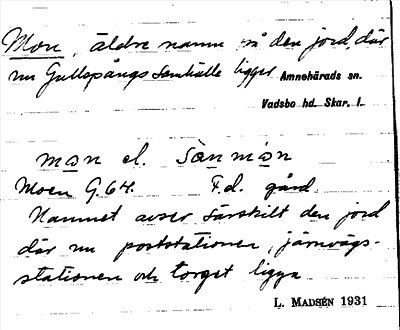 Mon, äldre namn på den jord, där
nu Gullspångs samhälle ligger Amnehärads sn.
Vadsbo hd. Skar. l.
mon el. sanmon
Moen G. 64. F.d. gård
Namnet avser särskilt den jord
där nu poststationen, järnvägs-
stationen och torget ligga
L. MADSÉN 1931